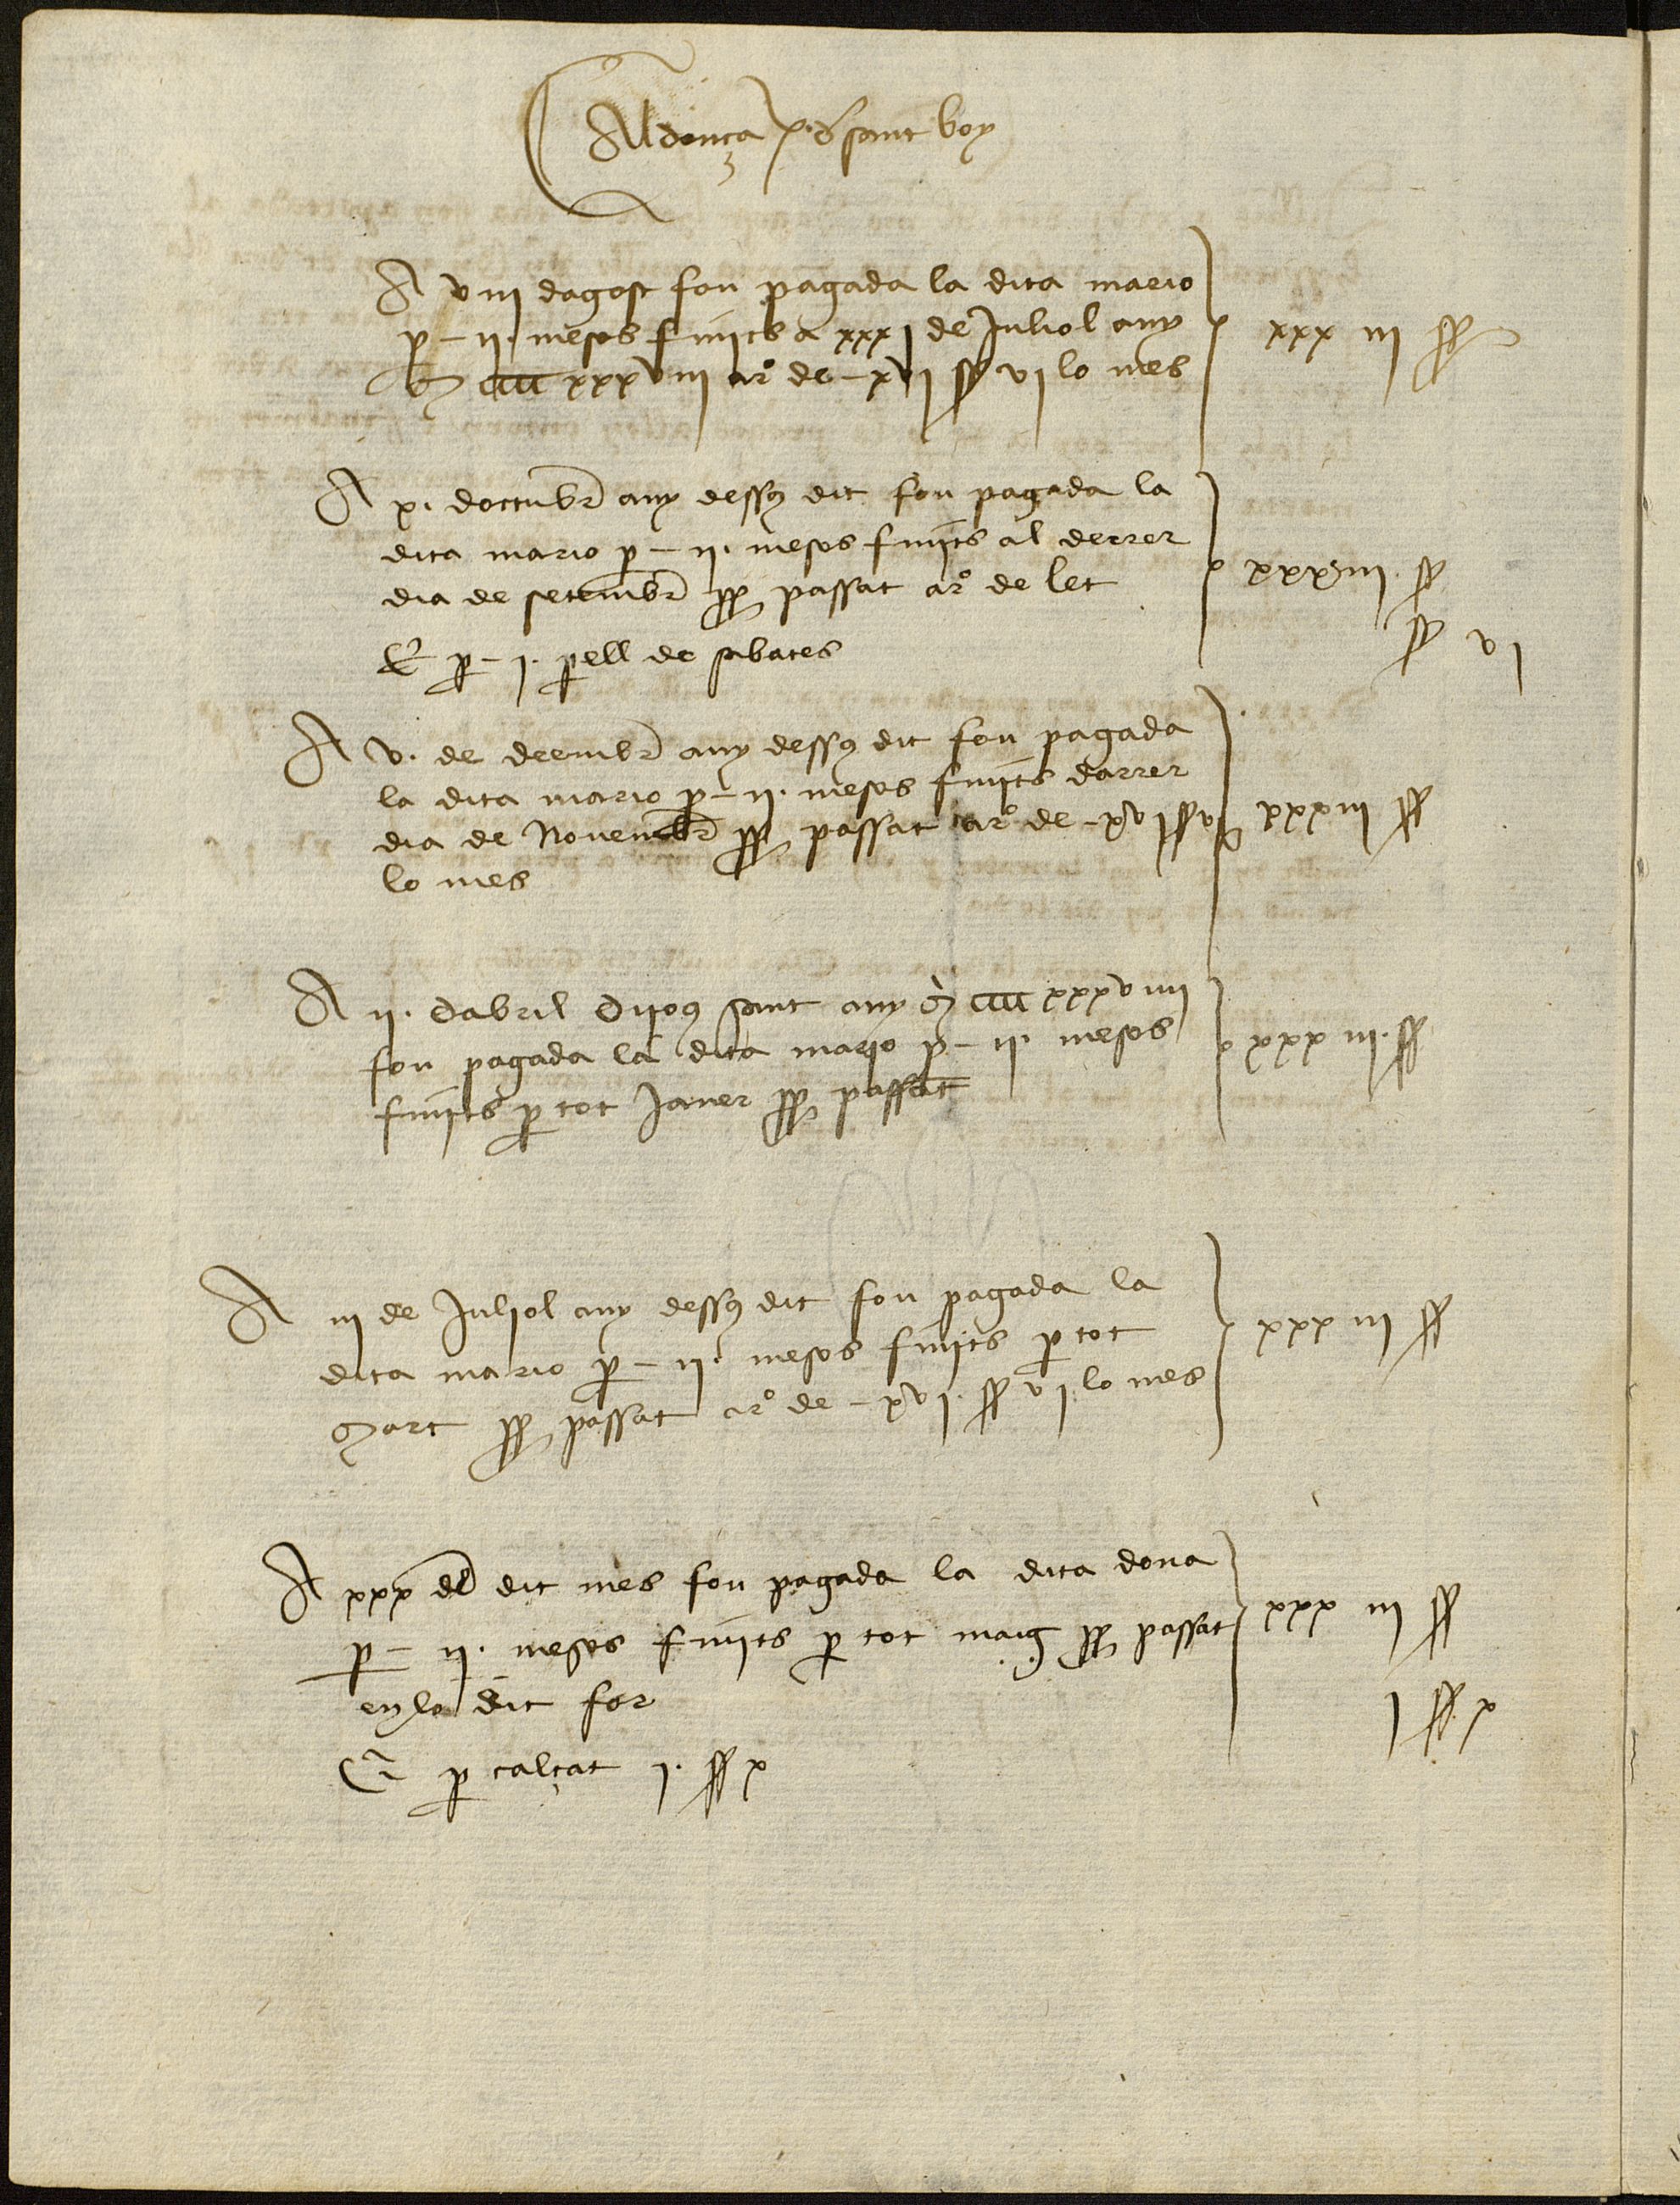 Aldonça x. d sant boy
A viii dagost fou pagada la dita mario
p - ii. mesos finits a xxxi de Juliol any
M cccc xxxviii ar° de - xvi ss vi lo mes
xxx iii ss
A x. doctubr any dessus dit fou pagada la
dita mario p - ii. mesos finits al derrer
dia de setembr pp passat ar° de let
xxxiii ss
E p - i. pell de sabates
ss vi
A v. de deembr any dessus dit fou pagada
la dita mario p - ii. mesos finits darrer
dia de Novembr pp passat ar° de - xvi ss vi
lo mes
xxxiii ss
A ii. dabril Dijous sant any M cccc xxxviiii
fou pagada la dita mario p - ii. mesos
finits p tot Janer pp passat
xxx iii. ss
A iii de Juliol any dessus dit fou pagada la
dita mario p - ii. mesos finits p tot
Mart pp passat ar° de - xvi. ss vi. lo mes
xxx iii ss
A xxx del dit mes fou pagada la dita dona
p - ii. mesos finits p tot maig pp passat
en lo dit for
xxx iii ss
E p calçat i. ss x
i ss x